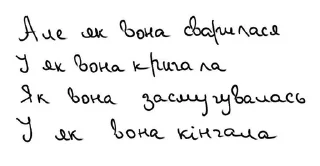 Але як вона сварилася
І як вона кричала
Як вона засмучувалась
І як вона кінчала